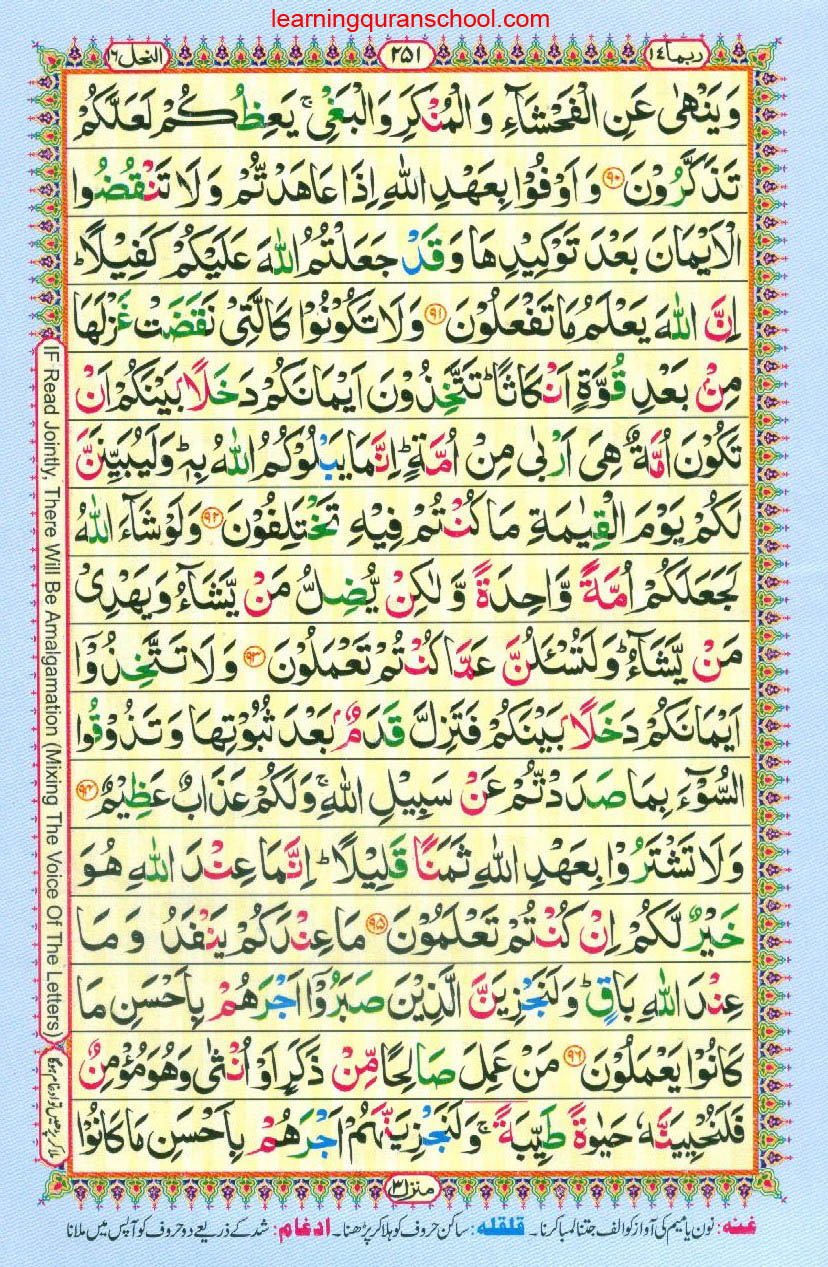 learningquranschool.com
ربما ١٤
٢٥١
النحل ١٦
وَيَنْهٰى عَنِ الْفَحْشَآءِ وَالْمُنْكَرِ وَالْبَغْیِ ۚ يَعِظُكُمْ لَعَلَّكُمْ
تَذَكَّرُوْنَ ﴿۹۰﴾ وَاَوْفُوْا بِعَهْدِ اللّٰهِ اِذَا عَاهَدْتُّمْ وَلَا تَنْقُضُوا
الْاَيْمَانَ بَعْدَ تَوْكِيْدِهَا وَقَدْ جَعَلْتُمُ اللّٰهَ عَلَيْكُمْ كَفِيْلًا ؕ
اِنَّ اللّٰهَ يَعْلَمُ مَا تَفْعَلُوْنَ ﴿۹۱﴾ وَلَا تَكُوْنُوْا كَالَّتِیْ نَقَضَتْ غَزْلَهَا
مِنْۢ بَعْدِ قُوَّةٍ اَنْكَاثًا ؕ تَتَّخِذُوْنَ اَيْمَانَكُمْ دَخَلًاۢ بَيْنَكُمْ اَنْ
تَكُوْنَ اُمَّةٌ هِیَ اَرْبٰى مِنْ اُمَّةٍ ؕ اِنَّمَا يَبْلُوْكُمُ اللّٰهُ بِهٖ ؕ وَلَيُبَيِّنَنَّ
لَكُمْ يَوْمَ الْقِيٰمَةِ مَا كُنْتُمْ فِيْهِ تَخْتَلِفُوْنَ ﴿۹۲﴾ وَلَوْ شَآءَ اللّٰهُ
لَجَعَلَكُمْ اُمَّةً وَّاحِدَةً وَّلٰكِنْ يُّضِلُّ مَنْ يَّشَآءُ وَيَهْدِیْ
مَنْ يَّشَآءُ ؕ وَلَتُسْئَلُنَّ عَمَّا كُنْتُمْ تَعْمَلُوْنَ ﴿۹۳﴾ وَلَا تَتَّخِذُوْٓا
اَيْمَانَكُمْ دَخَلًاۢ بَيْنَكُمْ فَتَزِلَّ قَدَمٌۢ بَعْدَ ثُبُوْتِهَا وَتَذُوْقُوا
السُّوْٓءَ بِمَا صَدَدْتُّمْ عَنْ سَبِيْلِ اللّٰهِ ۚ وَلَكُمْ عَذَابٌ عَظِيْمٌ ﴿۹۴﴾
وَلَا تَشْتَرُوْا بِعَهْدِ اللّٰهِ ثَمَنًا قَلِيْلًا ؕ اِنَّمَا عِنْدَ اللّٰهِ هُوَ
خَيْرٌ لَّكُمْ اِنْ كُنْتُمْ تَعْلَمُوْنَ ﴿۹۵﴾ مَا عِنْدَكُمْ يَنْفَدُ وَمَا
عِنْدَ اللّٰهِ بَاقٍ ؕ وَلَنَجْزِيَنَّ الَّذِيْنَ صَبَرُوْٓا اَجْرَهُمْ بِاَحْسَنِ مَا
كَانُوْا يَعْمَلُوْنَ ﴿۹۶﴾ مَنْ عَمِلَ صَالِحًا مِّنْ ذَكَرٍ اَوْ اُنْثٰى وَهُوَ مُؤْمِنٌ
فَلَنُحْيِيَنَّهٗ حَيٰوةً طَيِّبَةً ۚ وَلَنَجْزِيَنَّهُمْ اَجْرَهُمْ بِاَحْسَنِ مَا كَانُوْا
IF Read Jointly, There Will Be Amalgamation (Mixing The Voice Of The Letters)
ملا کر پڑھیں تو ادغام ہوگا
منزل ٣
غنہ: نون یا میم کی آواز کو الف جتنا لمبا کرنا۔ قلقلہ: ساکن حروف کو ہلا کر پڑھنا۔ ادغام: شد کے ذریعے دو حروف کو آپس میں ملانا